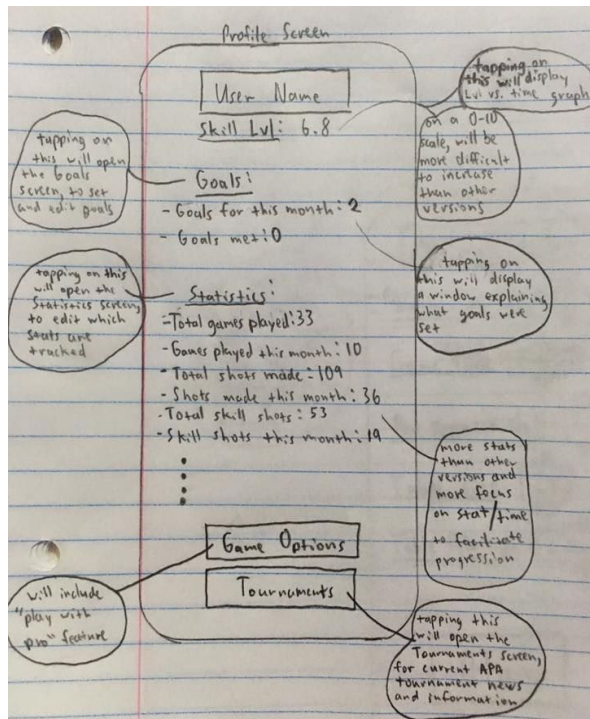 Profile Screen
User Name
Skill Lvl: 6.8
tapping on
this will display
Lvl vs. time graph
on a 0-10
scale, will be
more difficult
to increase
than other
versions
tapping on
this will open
the Goals
screen, to set
and edit goals
Goals:
- Goals for this month: 2
- Goals met: 0
tapping on
this will display
a window explaining
what goals were
set
tapping on this
will open the
Statistics screen,
to edit which
stats are
tracked
Statistics:
- Total games played: 33
- Games played this month: 10
- Total shots made: 109
- Shots made this month: 36
- Total skill shots: 53
- Skill shots this month: 19
more stats
than other
versions and
more focus
on stat/time
to facilitate
progression
Game Options
will include
"play with
pro" feature
Tournaments
tapping this
will open the
Tournaments screen,
for current APA
tournament news
and information